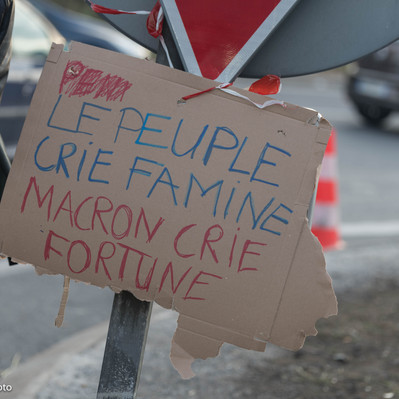 LE PEUPLE
CRIE FAMINE
MACRON CRIE
FORTUNE
oto